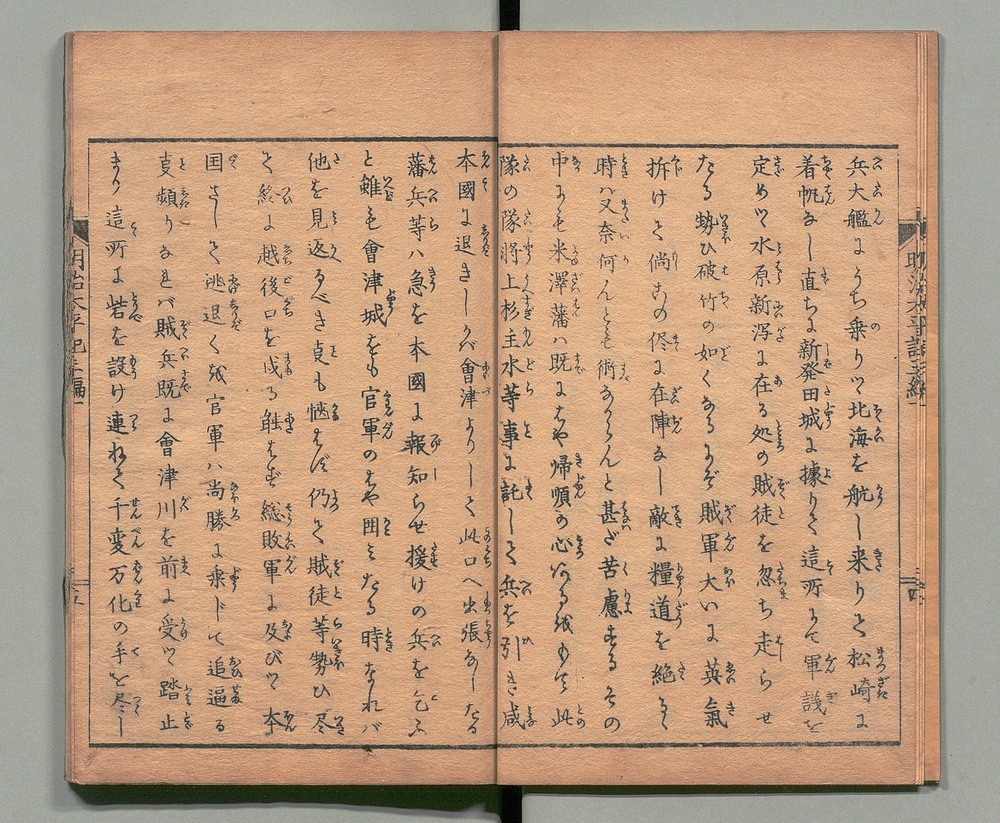 兵大艦にうち乗りツ北海を航し来りて松崎に
着帆なし直ちに新発田城に據りて這所にて軍議を
定めツ水原新泻に在る処の賊徒を忽ち走らせ
たる勢ひ破竹の如くなるにぞ賊軍大いに英氣
拆けて倘古の侭に在陣なし敵に糧道を絶るゝ
時ハ又奈何んともも術あらんと甚ざ苦慮するその
中にも米澤藩ハ既にはや帰順の心いる
隊の隊将上杉主水等事に託して兵を引き咸
本國に退きしかバ會津よりして此口へ出張なしたる
藩兵等ハ急を本國に報知らせ援けの兵を乞ふ
と雖も會津城をも官軍のはや囲みたる時なれバ
他を見返るべき も 仍て賊徒等勢ひ尽
て終に越後口を戍る 総敗軍に及びツ本
国さして逃退く 官軍ハ尚勝に乗じて追逼る
支頻りなれバ賊兵既に會津川を前に受ツ踏止
まり這所に砦を設け連ねて千変万化の手を尽し
明治太平記三編
明治太平記三編